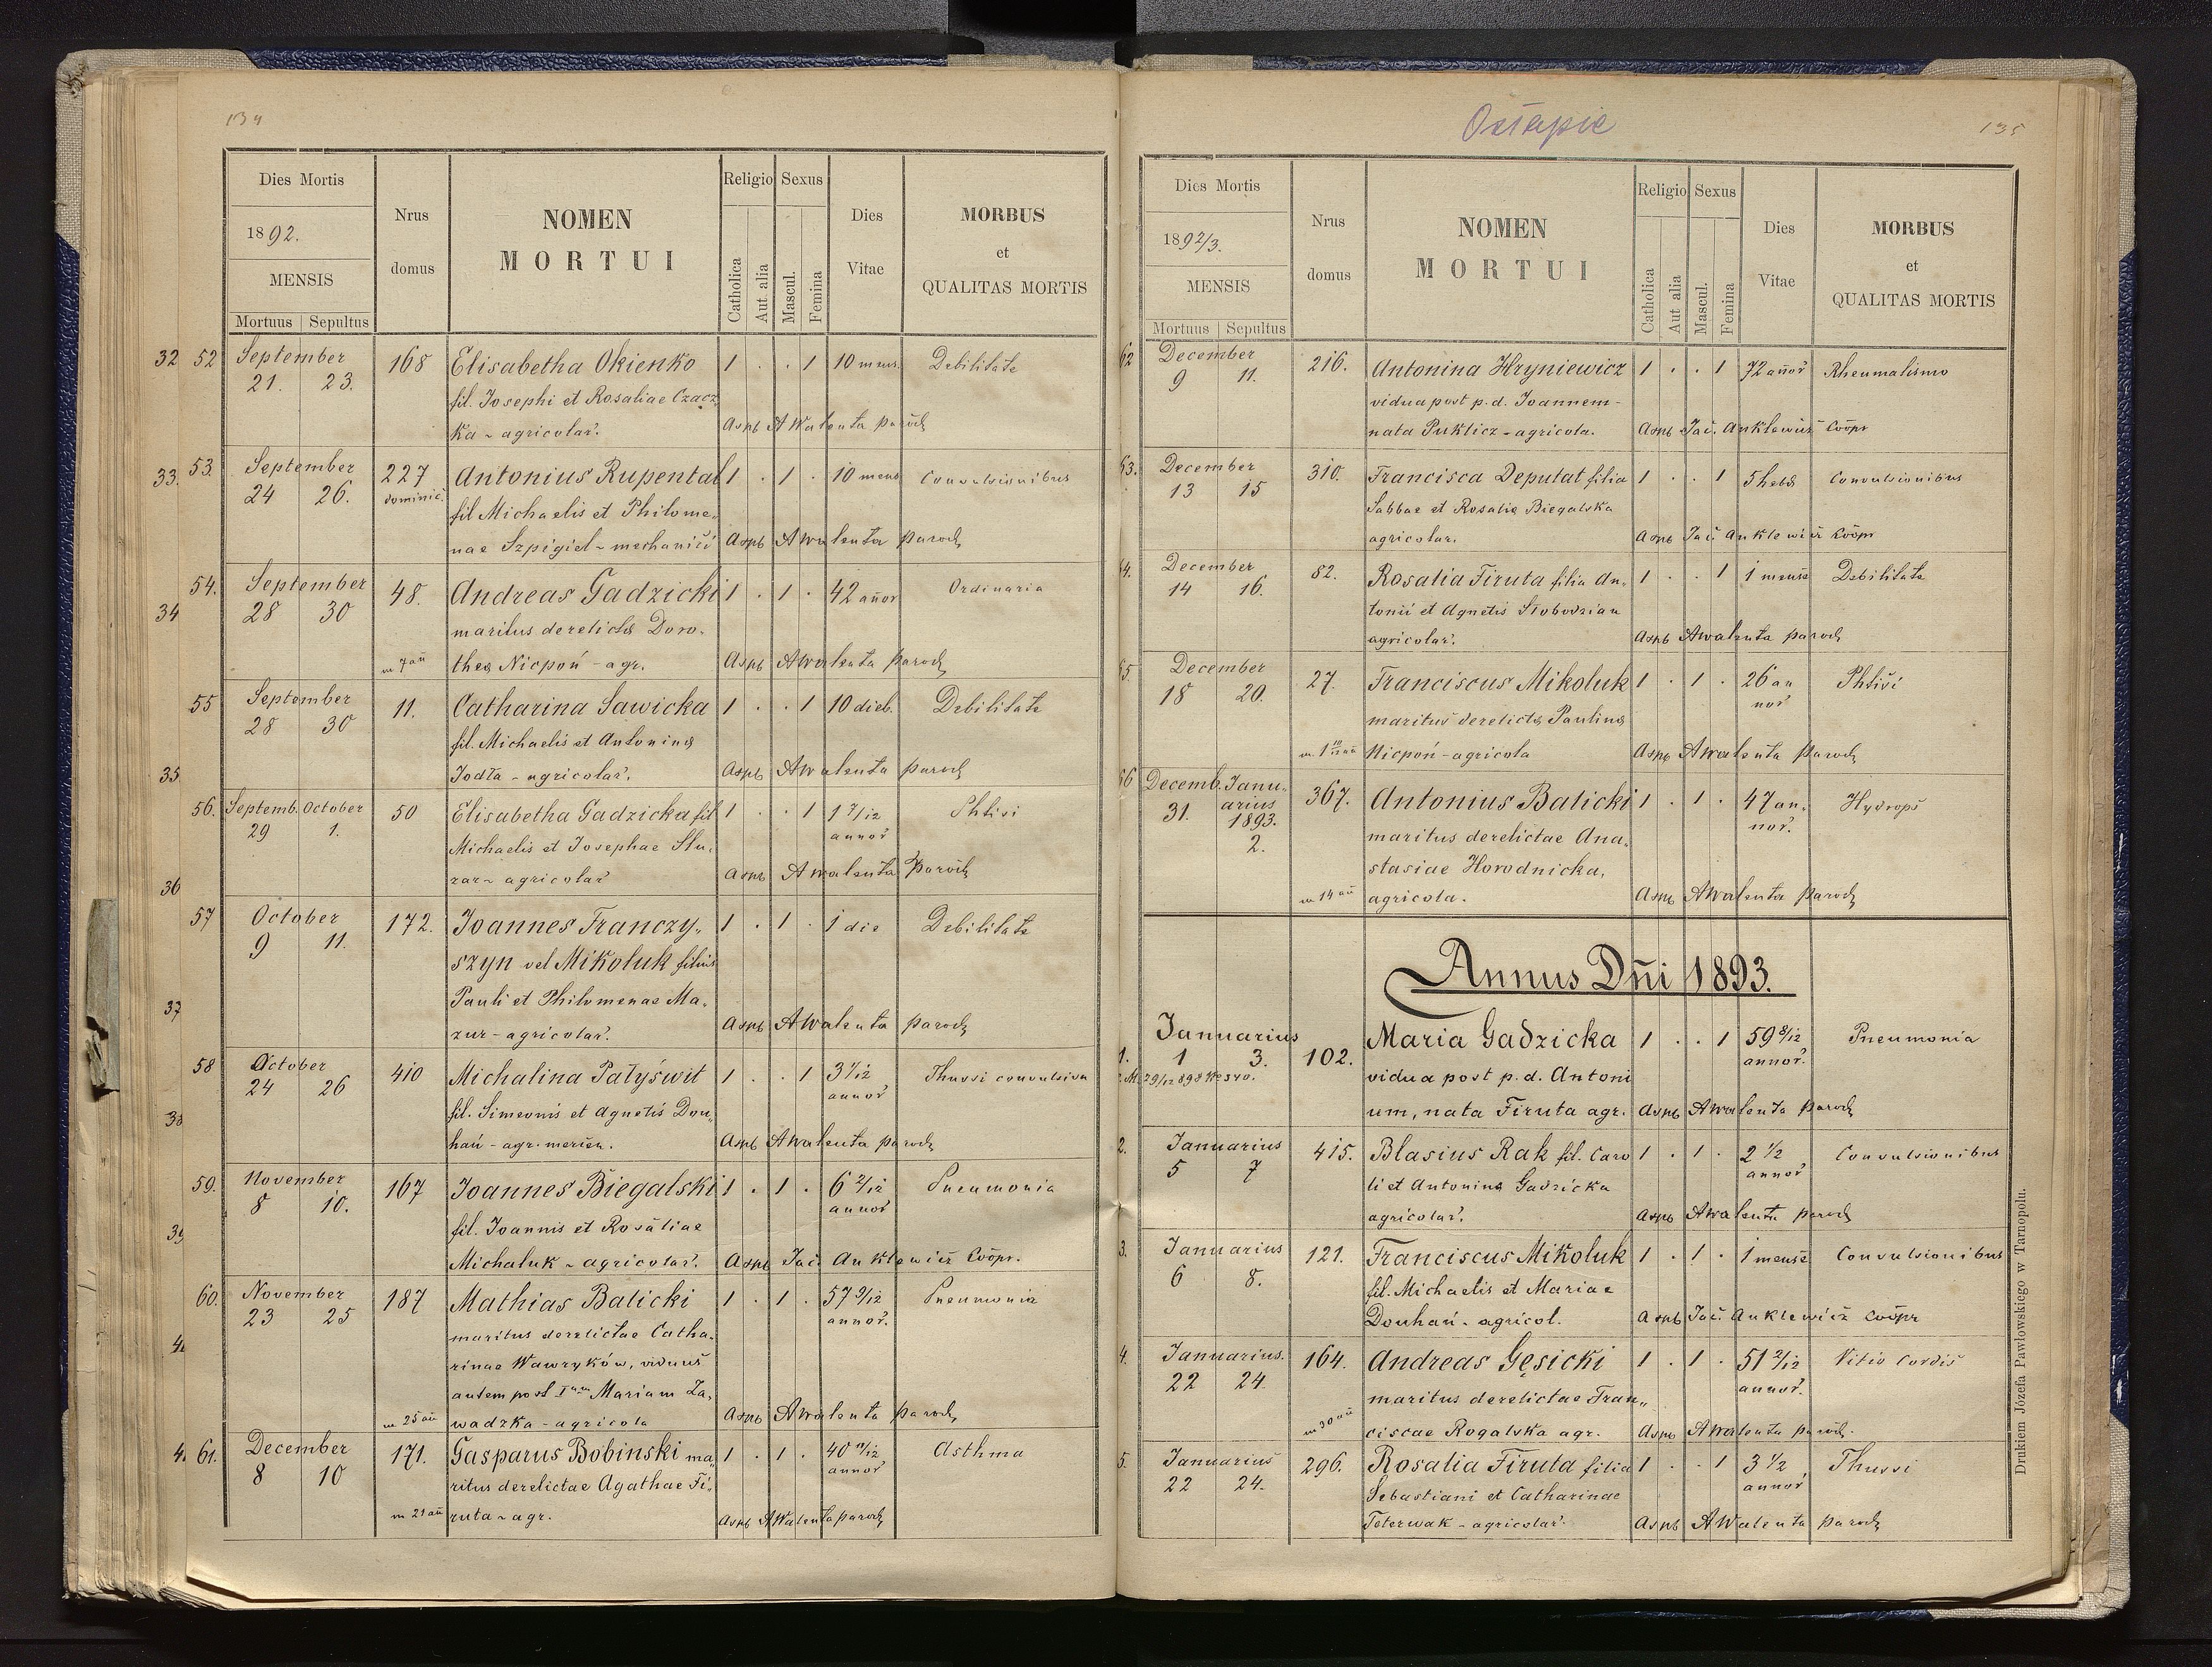 134
Dies Mortis
1892.
MENSIS
Mortuus Sepultus
Nrus domus
NOMEN
MORTUI
Religio Sexus
Catholica Aut alia Mascul. Femina
Dies Vitae
MORBUS
et
QUALITAS MORTIS
32 52 September 168 Elisabetha Okienko 1 . . 1 10 mens. Debilitate
21. 23. fil. Josephi et Rosaliae Czacz
ka - agricolar. Aspb A Walenta paroch
33. 53. September 227 Antonius Rupental 1 . 1 . 10 mens Convulsionibus
24 26. dominic. fil Michaelis et Philome-
nae Szpigiel - mechanici Aspb A Walenta Paroch
34 54. September 48. Andreas Gadzicki 1 . 1 . 42 annor Ordinaria
28 30 maritus derelictae Doro-
m 7 an theae Nicpoń - agr. Aspb A Walenta Paroch
55 September 11. Catharina Sawicka 1 . . 1 10 dieb. Debilitate
28 30 fil. Michaelis et Antoninae
35 Jodła - agricolar. Aspb A Walenta paroch
56. Septemb. October 50 Elisabetha Gadzicka fil 1 . . 1 1 7/12 Phtisi
29 1. Michaelis et Josephae Slu- annor
36 zar - agricolar Aspb A Walenta Paroch
57 October 172. Joannes Franczy- 1 . 1 . 1 die Debilitate
9 11. szyn vel Mikoluk filius
Pauli et Philomenae Ma-
37 zur - agricolar. Aspb A Walenta paroch
58 October 410 Michalina Pałyświt 1 . . 1 3 1/12 Thussi convulsiva
24 26 fil. Simeonis et Agnetis Dou- annor
38 hań - agr. Aspb A Walenta paroch
59. November 167 Joannes Biegalski 1 . 1 . 6 2/12 Pneumonia
8 10. fil. Joannis et Rosaliae annor
39 Michaluk - agricolar. Aspb Jac. Anklewicz Coopr.
60. November 187 Mathias Balicki 1 . 1 . 57 9/12 Pneumonia
23 25 maritus derelictae Catha- annor.
rinae Wawryków, viduus
autem post Imam Mariam Za-
m 25 an wadzka - agricola Aspb A Walenta Paroch
61. December 171. Gasparus Bobinski ma- 1 . 1 . 40 11/12 Asthma
8 10 ritus derelictae Agathae Fi- annor
m 21 an ruta - agr. Aspb A Walenta paroch
Ostapie
135
Dies Mortis
1892/3.
MENSIS
Mortuus Sepultus
Nrus domus
NOMEN
MORTUI
Religio Sexus
Catholica Aut alia Mascul. Femina
Dies Vitae
MORBUS
et
QUALITAS MORTIS
62 December 216. Antonina Hryniewicz 1 . . 1 72 annor Rheumatismo
9 11. vidua post p. d. Joannem -
nata Puklicz - agricola. Aspb Jac. Anklewicz Coopr
63. December 310. Francisca Deputat filia 1 . . 1 5 hebd Convulsionibus
13 15 Sabbae et Rosaliae Biegalska
agricolar. Aspb Jac. Anklewicz Coopr
64. December 82. Rosalia Firuta filia An- 1 . . 1 1 mense Debilitate
14 16. tonii et Agnetis Słobodzian
agricolar. Aspb A Walenta paroch
65. December 27. Franciscus Mikoluk 1 . 1 . 26 an Phtisi
18 20. maritus derelictae Paulinae nor
Nicpoń - agricola Aspb A Walenta Paroch
66 Decemb. Janu- 367. Antonius Balicki 1 . 1 . 47 an- Hydrops
31. arius 1893. 2. maritus derelictae Ana- nor.
stasiae Horodnicka,
m 14 an agricola. Aspb A Walenta Paroch
Annus Dñi 1893.
1. Januarius 102. Maria Gadzicka 1 . . 1 59 8/12 Pneumonia
1 3. vidua post p. d. Antoni annor.
29/12 898 No 340. um, nata Firuta agr. Aspb A Walenta Paroch
2. Januarius 415. Blasius Rak fil. Caro 1 . 1 . 2 1/2 Convulsionibus
5 7 li et Antoninae Gadzicka annor
agricolar. Aspb A Walenta paroch
3. Januarius 121. Franciscus Mikoluk 1 . 1 . 1 mense Convulsionibus
6 8. fil. Michaelis et Mariae
Douhań - agricol. Aspb Jac. Anklewicz Coopr
4. Januarius. 164. Andreas Gęsicki 1 . 1 . 51 2/12 Vitio Cordis
22 24. maritus derelictae Fran- annor.
m 30 an ciscae Rogalska agr. Aspb A Walenta paroch.
5. Januarius 296. Rosalia Firuta filia 1 . . 1 3 1/2 Thussi
22 24. Sebastiani et Catharinae annor
Teterwak - agricolar. Aspb A Walenta Paroch
Drukiem Józefa Pawłowskiego w Tarnopolu.